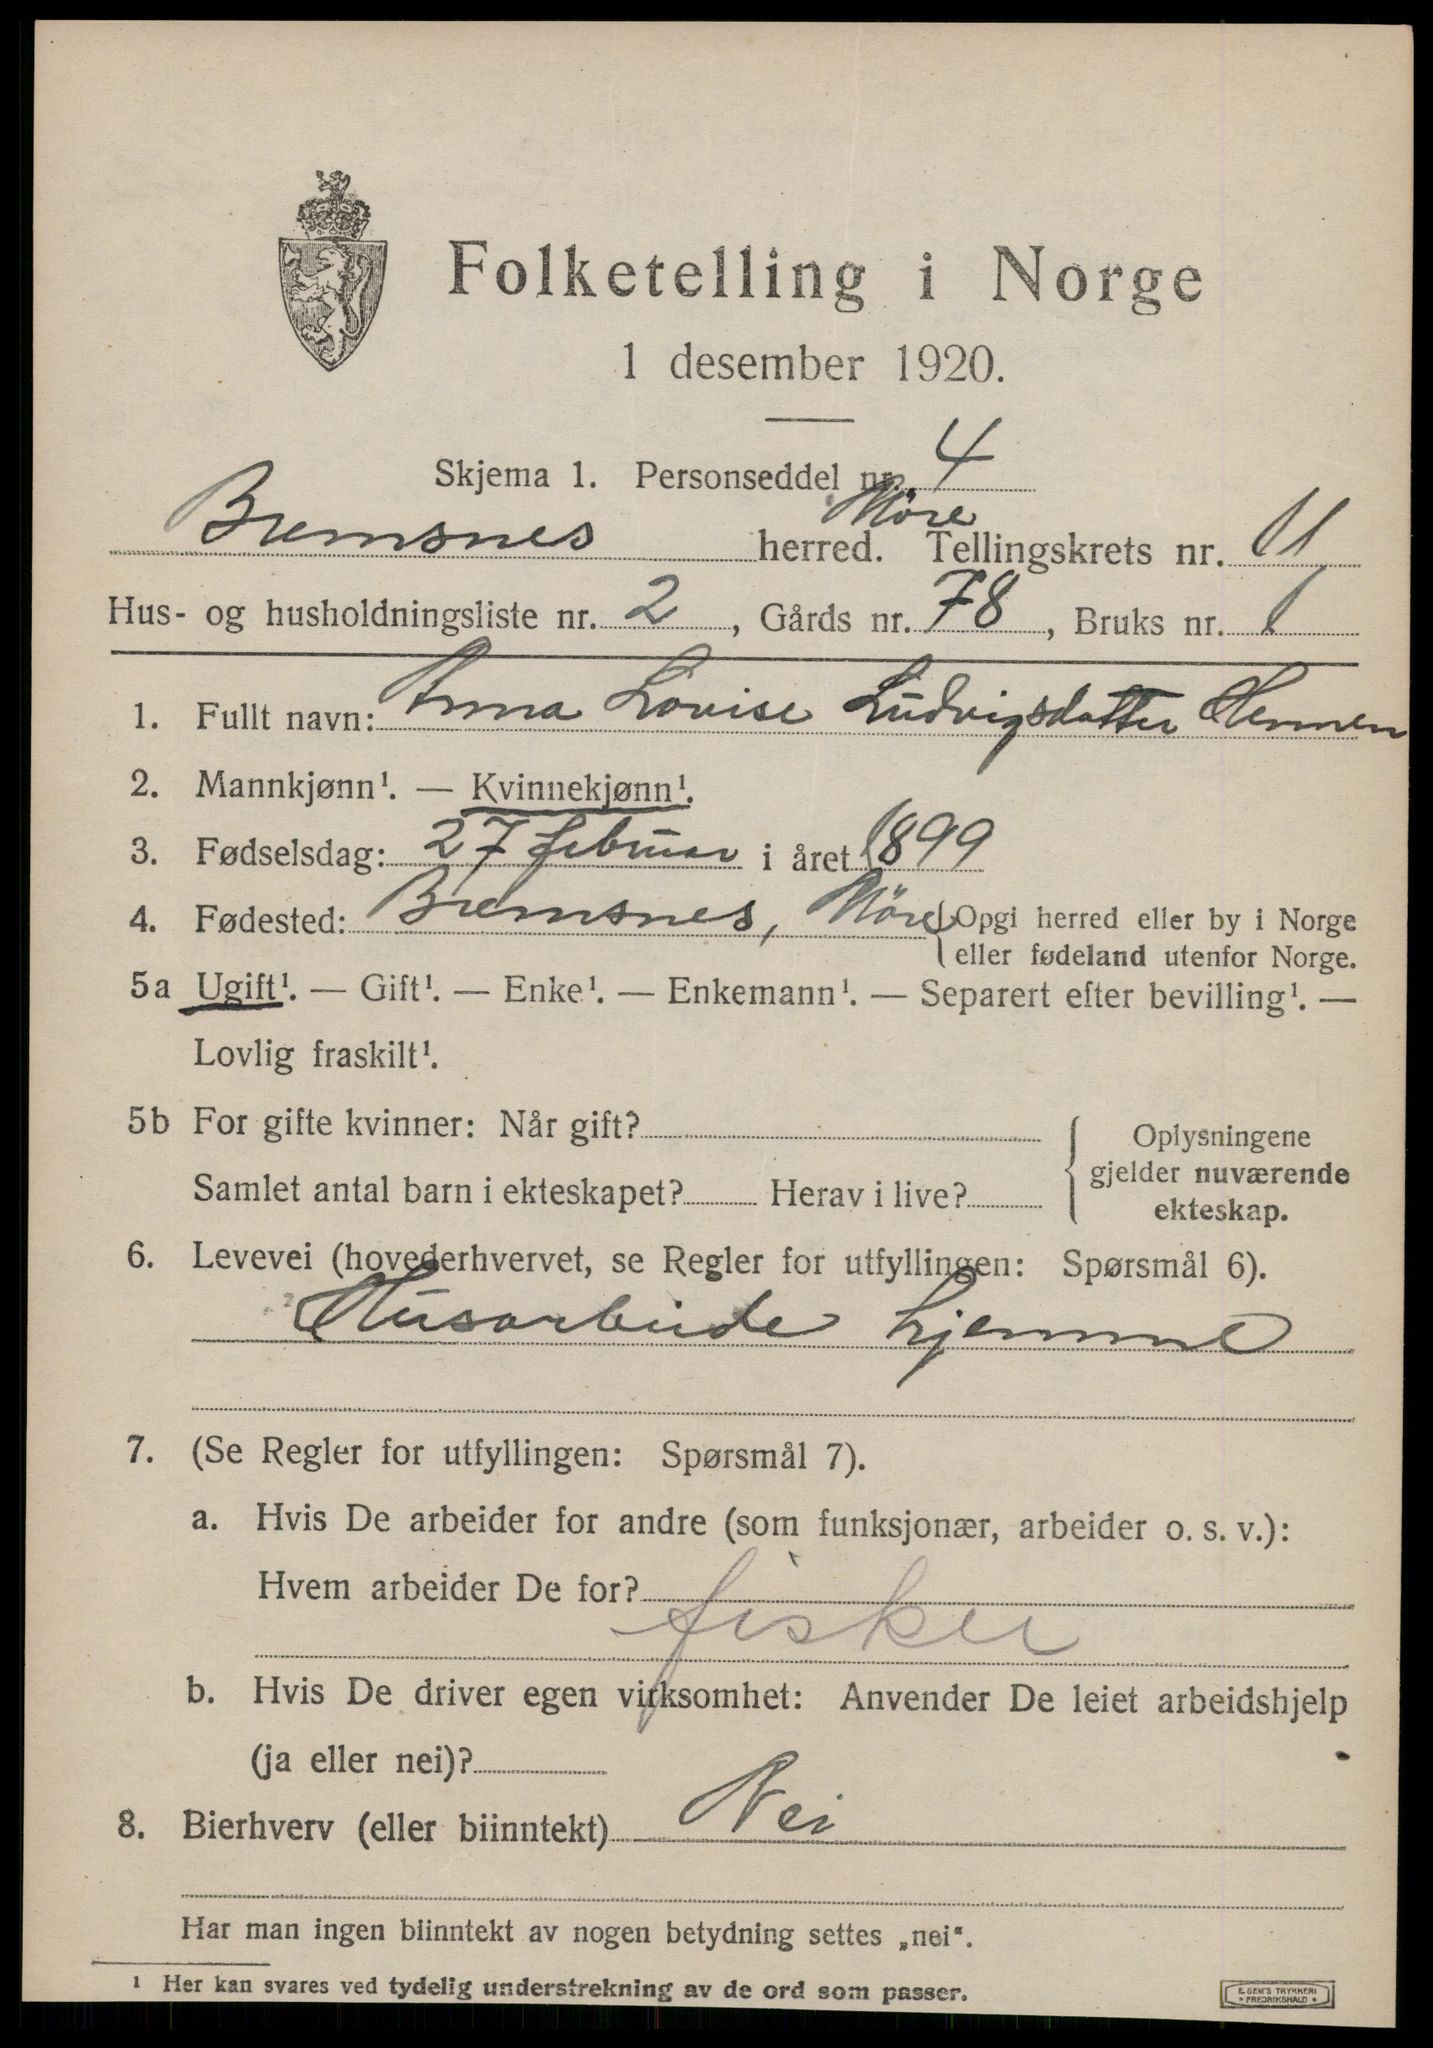 Folketelling i Norge
1 desember 1920.
Skjema 1. Personseddel nr. 4
Bremsnes herred. Møre Tellingskrets nr. 11
Hus- og husholdningsliste nr. 2, Gårds nr. 78, Bruks nr. 1
1. Fullt navn: Anna Lovise Ludvigsdatter
2. Mannkjønn¹. — Kvinnekjønn¹.
3. Fødselsdag: 27 februar i året 1899
4. Fødested: Bremsnes, Møre {Opgi herred eller by i Norge
eller fødeland utenfor Norge.
5a Ugift¹. — Gift¹. — Enke¹. — Enkemann¹. — Separert efter bevilling¹. —
Lovlig fraskilt¹.
5b For gifte kvinner: Når gift?
Samlet antal barn i ekteskapet? Herav i live?
Oplysningene
gjelder nuværende
ekteskap.
6. Levevei (hovederhvervet, se Regler for utfyllingen: Spørsmål 6).
Husarbeide hjemme
7. (Se Regler for utfyllingen: Spørsmål 7).
a. Hvis De arbeider for andre (som funksjonær, arbeider o. s. v.):
Hvem arbeider De for?
fisker
b. Hvis De driver egen virksomhet: Anvender De leiet arbeidshjelp
(ja eller nei)?
8. Bierhverv (eller biinntekt) Nei
Har man ingen biinntekt av nogen betydning settes „nei“.
¹ Her kan svares ved tydelig understrekning av de ord som passer.
E. SEM'S TRYKKERI
• FREDRIKSHALD •